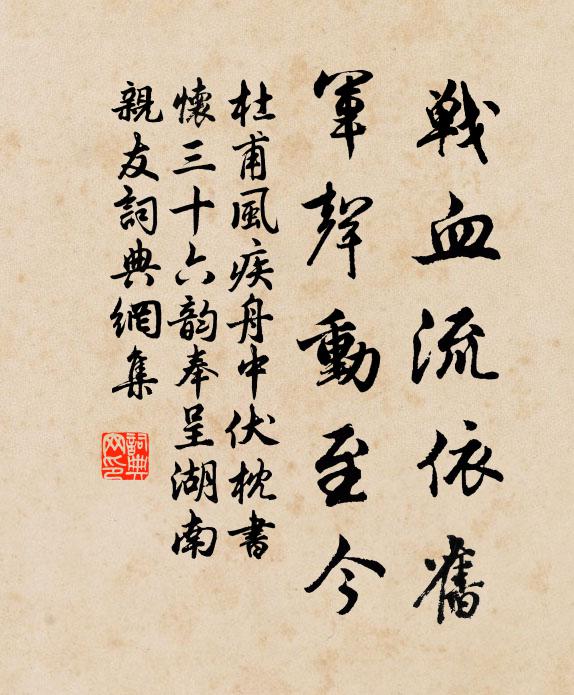 戰血流依舊
軍聲動至今
杜甫風疾舟中伏枕書
懷三十六韵奉呈湖南
親友詞典網集
詞典
网印